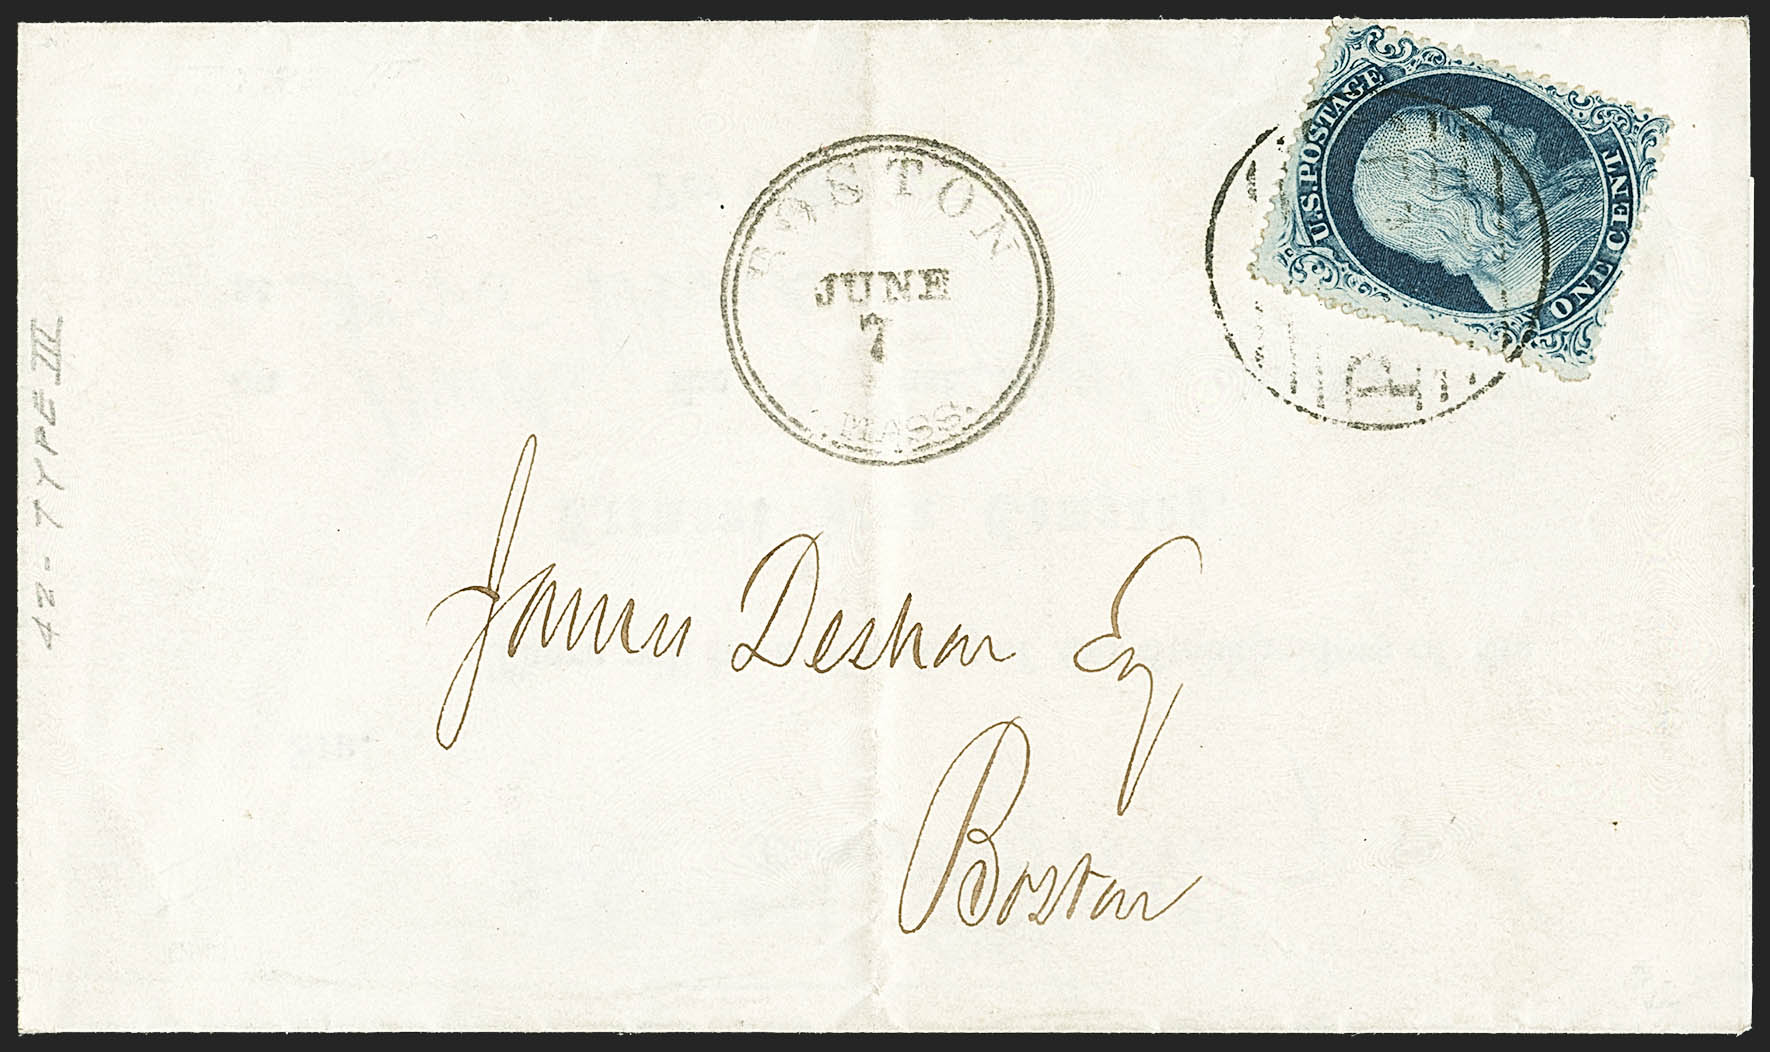 U.S. POSTAGE
ONE CENT
BOSTON
JUNE
7
MASS.
PAID
42 - TYPE III
James Deshon Esq
Boston